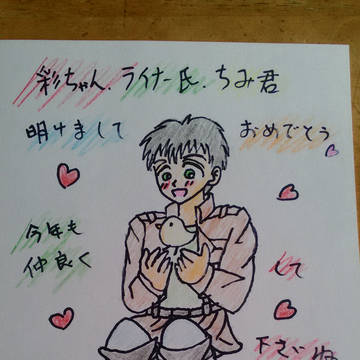 彩ちゃん.ライナー氏.ちみ君
明けまして おめでとう
今年も
仲良く して
下さいね